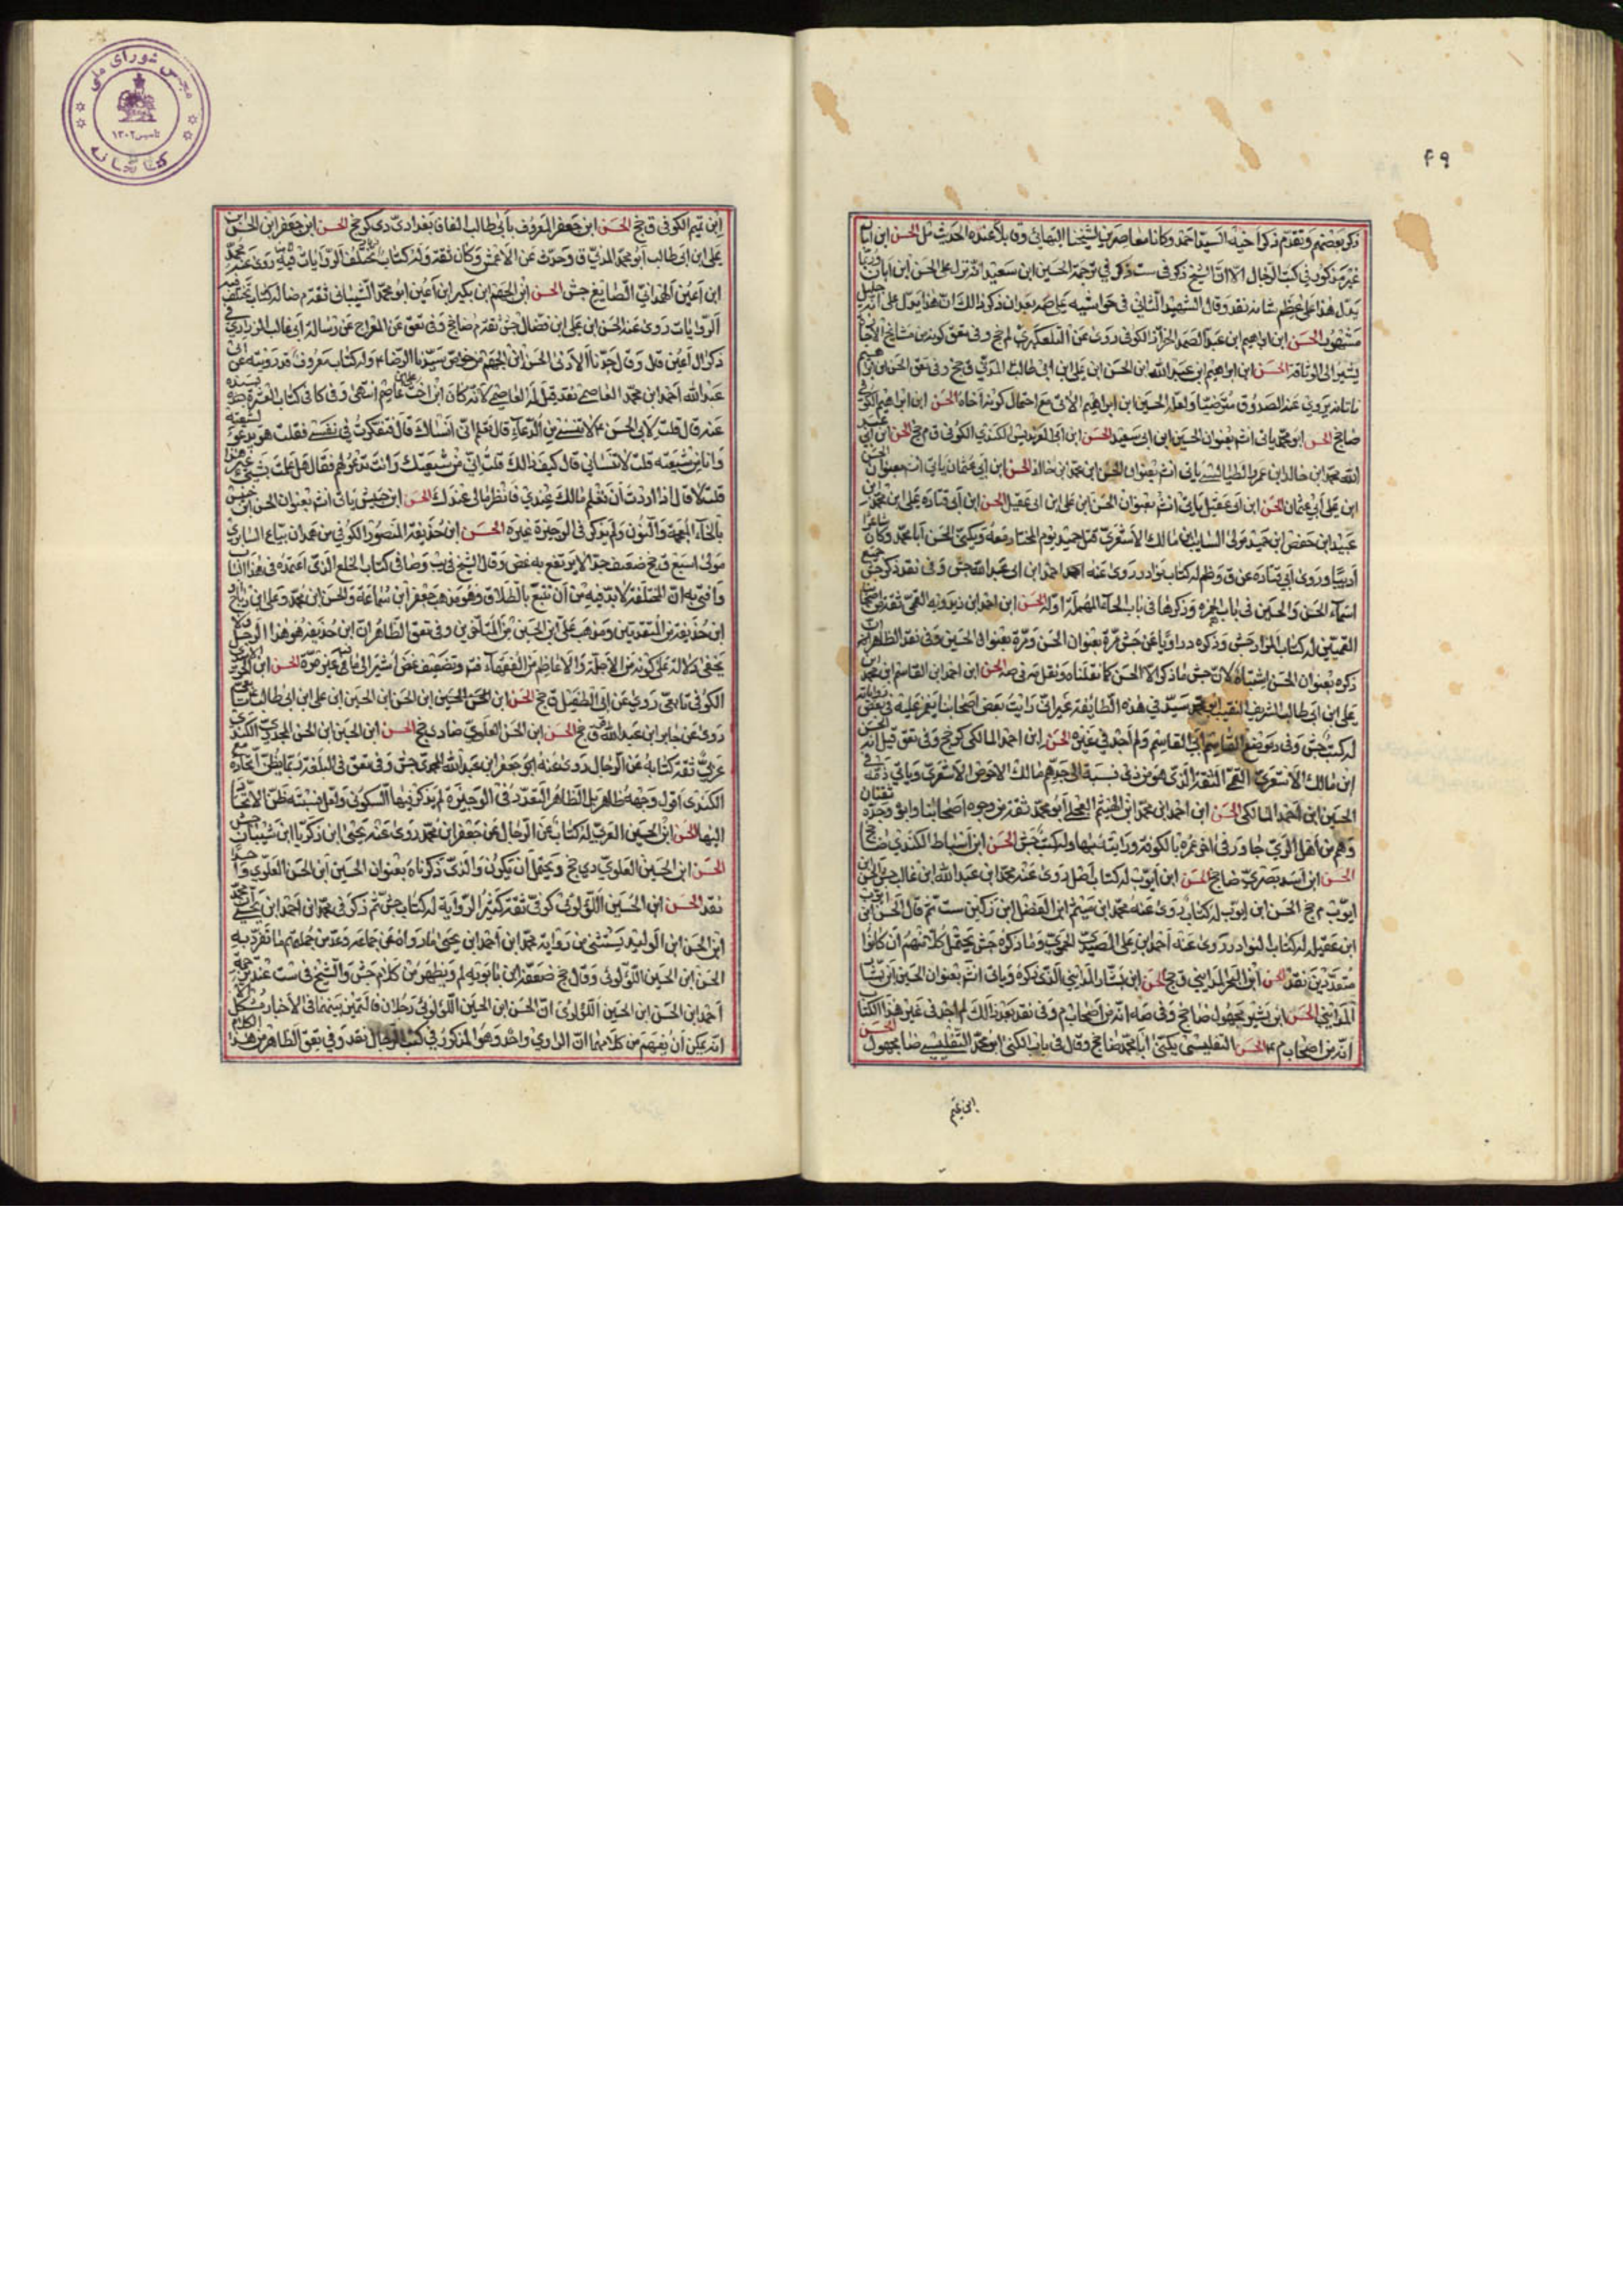 ۴۹
ذكره بعضهم وتقدم ذكر اخيه السيد احمد وكانا معاصرين لشيخنا البهائي وقابلا عنده الحديث مل الحسن ابن ابان
غير مذكور في كتب الرجال الا ان الشيخ ذكر في ست في ترجمة الحسين ابن سعيد انه نزل على الحسن ابن ابان وربما
يدل هذا على عظم شانه نقد وقال الشهيد الثاني في حواشيه على صه بعد ان ذكر ذلك ان هذا يدل على انه جليل
مشهور الحسن ابن ابراهيم ابن عبد الصمد الخزاز الكوفي روى عنه التلعكبري لم جخ وفي تعق كونه من مشايخ الاجازة
يشير الى الوثاقة الحسن ابن ابراهيم ابن عبد الله ابن الحسن ابن علي ابن ابي طالب المدني ق جخ وفي تعق الحسن ابن ابراهيم
ناتانه يروي عنه الصدوق مترضيا ولعله الحسين ابن ابراهيم الاتي مع احتمال كونه اخاه الحسن ابن ابراهيم الكوفي
ضا جخ الحسن ابو محمد ياتي انش بعنوان الحسين ابن ابي سعيد الحسن ابن ابي العرندس الكندي الكوفي ق م جخ الحسن ابن ابي
الله محمد ابن خالد ابن عمر الطيالسي ياتي انش بعنوان الحسن ابن محمد ابن خالد الحسن ابن ابي عثمان ياتي انش بعنوان الحسن
ابن علي ابي عثمان الحسن ابن ابي عقيل ياتي انش بعنوان الحسن ابن علي ابن ابي عقيل الحسن ابن ابي قتادة علي ابن محمد ابن
عبيد ابن حفص ابن حميد مولى السايب ابن مالك الاشعري قتل حميد يوم المختار معه ويكنى الحسن ابا محمد وكان شاعرا
اديبا وروى ابي قتادة عن ق وظم له كتاب نوادر روى عنه احمد ابن ابي عبد الله جش وفي نقد ذكر جش جميع
اسماء الحسن والحسين في باب الهمزة وذكرها في باب الحاء المهملة اوله الحسن ابن احمد ابن ريذويه القمي ثقة من اصحابنا
القميين له كتاب المزار جش وذكره د راويا عن جش مرة بعنوان الحسن ومرة بعنوان الحسين وفي نقد الظاهر ان
ذكره بعنوان الحسين اشتباه لان جش ما ذكر الا الحسن كما نقلناه ونقل مه في صه الحسن ابن احمد ابن القاسم ابن محمد ابن
علي ابن ابي طالب الشريف النقيب ابو محمد سيد في هذه الطايفة غير اني رايت بعض اصحابنا يغمز عليه في بعض رواياته
له كتب جش وفي د موضع القاسم ابي القاسم ولم اجد في غيره الحسن ابن احمد المالكي كر جخ وفي تعق قيل انه الحسين
ابن مالك الاشعري القمي الثقة الذي هو من دي نسبة الى جدهم مالك الاحوص الاشعري وياتي ذمه في
الحسين ابن احمد المالكي الحسن ابن احمد ابن محمد ابن الهيثم العجلي ابو محمد ثقة من وجوه اصحابنا وابوه وجده ثقتان
وهم من اهل الري جاور في اخر عمره بالكوفة ورايته بها وله كتب جش الحسن ابن اسباط الكندي ضا جخ
الحسن ابن اسد بصري ضا جخ الحسن ابن ايوب له كتاب اصل روى عنه محمد ابن عبد الله ابن غالب جش الحسن ابن
ايوب م جخ الحسن ابن ايوب له كتاب روى عنه محمد ابن سيثم ابن الفضل ابن زكين ست ثم قال الحسن ابن ايوب
ابن عقيل له كتاب النوادر روى عنه احمد ابن علي الصيدي الحموي وما ذكره جش يحتمل كلا منهم ان كانوا
متعددين نقد الحسن ابن البحر المدايني ق جخ الحسن ابن بشار المدايني الذي نكره وياتي انش بعنوان الحسين ابن بشار
المدايني الحسن ابن بشير مجهول ضا جخ وفي صه انه من اصحاب م وفي نقد بعد ذلك لم اجد في غير هذا الكتاب
انه من اصحاب م الحسن التفليسي يكنى ابا محمد ضا جخ وقال في باب الكنى ابو محمد التفليسي ضا مجهول الحسن
ابن تميم
مجلس شورای ملی
تاسیس ۱۳۰۲
کتابخانه
ابن تميم الكوفي ق جخ الحسن ابن جعفر المعروف بابي طالب الفافا بغدادي دي كر جخ الحسن ابن جعفر ابن الحسن ابن
علي ابن ابي طالب ابو محمد المدني ق وحدث عن الاعمش وكان ثقة وله كتاب مختلف الروايات فيه روى عنه محمد
ابن اعين الهمداني الصايغ جش الحسن ابن الجهم ابن بكير ابن اعين ابو محمد الشيباني ثقة م ضا له كتاب مختلف فيه
الروايات روى عنه الحسن ابن علي ابن فضال جش ثقة م ضا جخ وفي تعق عن المعراج عن رسالة ابي غالب الزراري في
ذكر ال اعين قال وقال جدنا الادنى الحسن ابن الجهم من خواص سيدنا الرضا وله كتاب معروف قد رويته عن ابي
عبد الله احمد ابن محمد العاصمي نقد قيل له العاصمي لانه كان ابن اخت علي ابن عاصم انتهى وفي كا في كتاب العشرة بسنده
عنه قال قلت لابي الحسن لا تنسني من الدعاء قال تعلم اني انساك قال فتفكرت في نفسي فقلت هو يدعو لشيعته
وانا من شيعته قلت لا تنساني قال كيف ذلك قلت اني من شيعتك وانت تدعو لهم فقال هل علمت بشيء غير هذا
قلت لا قال اذا اردت ان تعلم مالك عندي فانظر مالي عندك الحسن ابن حبيش ياتي انش بعنوان الحسن ابن خنيس
بالخاء المعجمة والنون ولم يذكر في الوجيزة غيره الحسن ابن حذيفة المنصور الكوفي من همدان بياع السابري
مولى سبيع ق جخ ضعيف جدا لا يرتفع به غض وقال الشيخ في يب وصا في كتاب الخلع الذي اعتمده في هذا الباب
وافتي به ان المختلعة لا بد فيه من ان تتبع بالطلاق وهو مذهب جعفر ابن سماعة والحسن ابن محمد وعلي ابن رباط و
ابن حذيفة من المتقدمين ومذهب علي ابن الحسين من المتاخرين وفي تعق الظاهر ان ابن حذيفة هو هذا الرجل ولا
يخفى دلالته على كونه من الاجلة والاعاظم من الفقهاء فتم وتضعيف غض اشير الى ما فيه غير مرة الحسن ابن الحر
الكوفي تابعي روى عن ابي الطفيل ق جخ الحسن ابن الحسن الحسين ابن الحسن ابن الحسين ابن علي ابن ابي طالب
روى عن جابر ابن عبد الله ق جخ الحسن ابن الحسن العلوي ضا دي جخ الحسن ابن الحسين ابن الحسن الجحدري الكندي
عربي ثقة كتابه عن الرجال روى عنه ابو جعفر ابن عبد الله المحمدي جش وفي تعق في البلغة ربما يظن اتحاده مع
الكندي اقول وجهه ظاهر بل الظاهر التعدد ففي الوجيزة لم يذكر فيها السكوني ولعل نسبته ظن الاتحاد
اليها الحسن ابن الحسين العرني له كتاب عن الرجال عن جعفر ابن محمد روى عنه يحيى ابن زكريا ابن شيبان جش
الحسن ابن الحسين العلوي دي جخ ويحتمل ان يكون والذي ذكرناه بعنوان الحسين ابن الحسن العلوي واحدا
نقد الحسن ابن الحسين اللؤلؤي كوفي ثقة كثير الرواية له كتاب جش ثم ذكر في محمد ابن احمد ابن يحيى ان محمد
ابن الحسن ابن الوليد يستثني من رواية محمد ابن احمد ابن يحيى ما رواه عن جماعة وعد من جملتهم ما تفرد به
الحسن ابن الحسين اللؤلؤي وقال جخ ضعفه ابن بابويه لم ويظهر من كلام جش والشيخ في ست عند ترجمة
احمد ابن الحسن ابن الحسين اللؤلؤي ان الحسن ابن الحسين اللؤلؤي رجلان فالتميز بينهما في الاخبار مشكل الا
انه يمكن ان يفهم من كلامهما ان الراوي واحد وهو المذكور في كتب الرجال نقد وفي تعق الظاهر من هذا الكلام